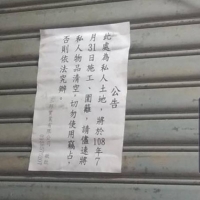 公告
此處為私人土地,將於108年7
月31日施工、圍籬,請儘速將
私人物品清空,切勿使用竊占。
否則依法究辦。